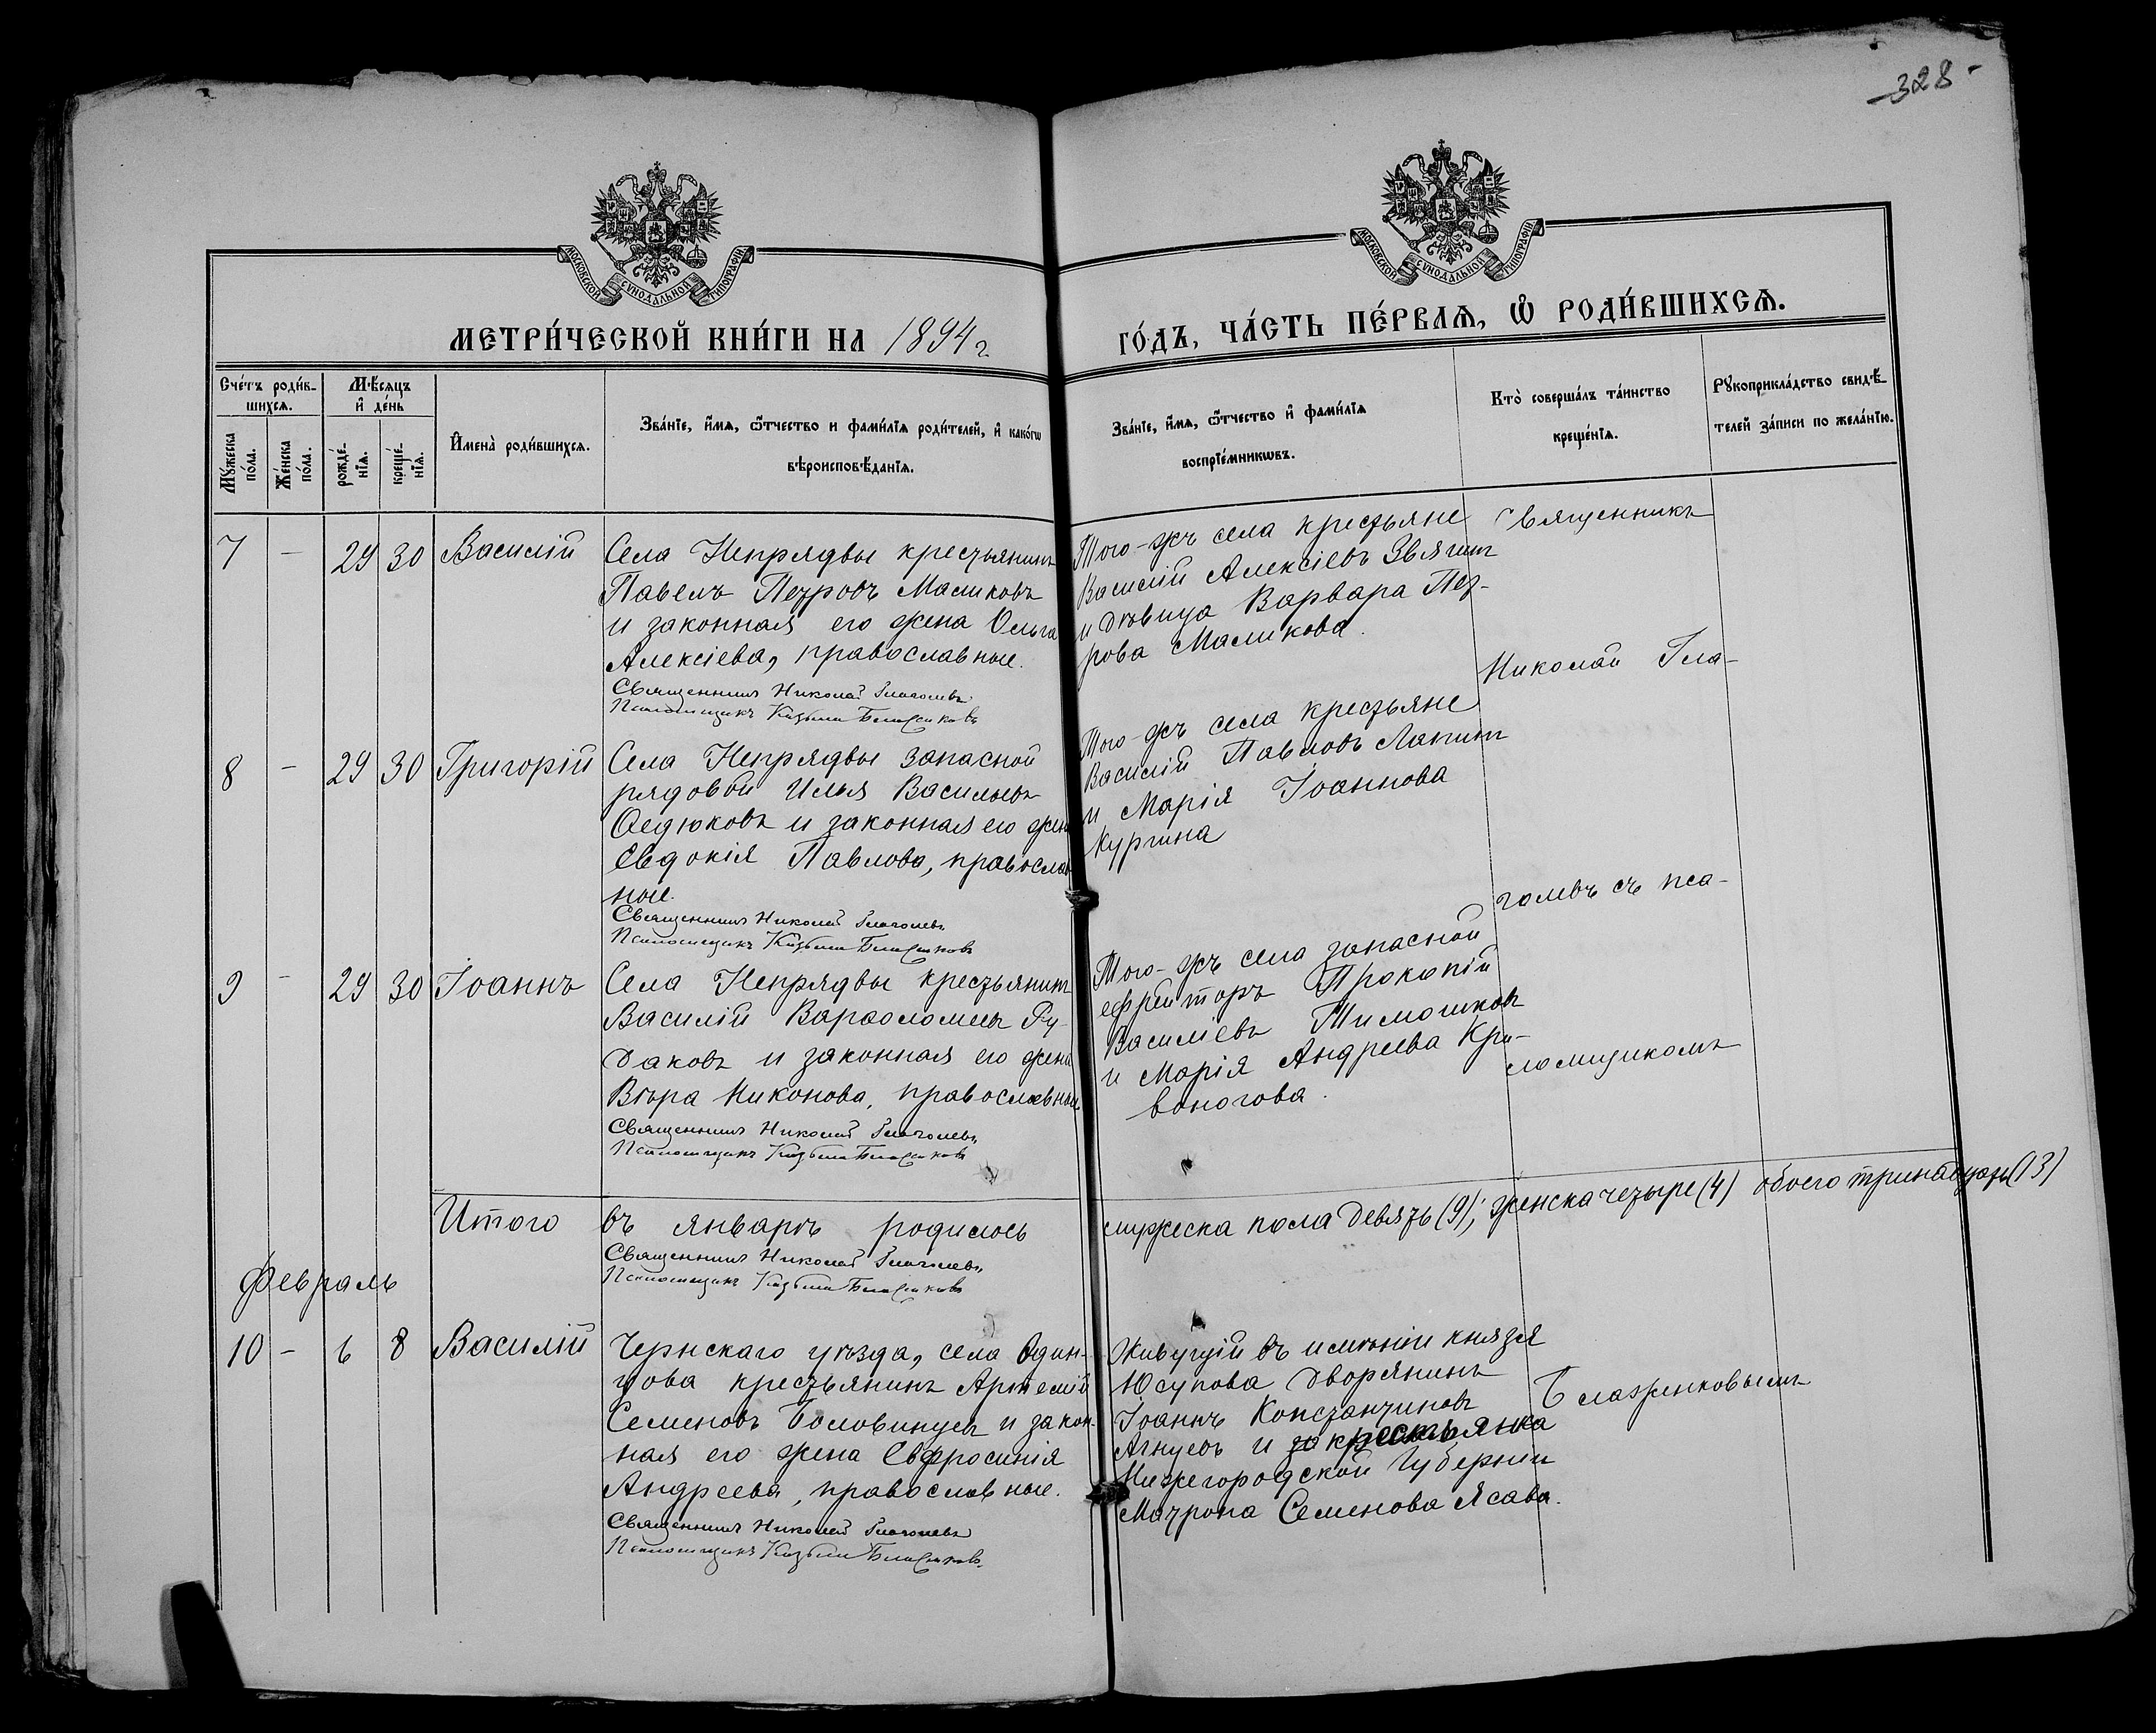 328
МОСКОВСКОЙ СѴНОДАЛЬНОЙ ТИПОГРАФІИ
МОСКОВСКОЙ СѴНОДАЛЬНОЙ ТИПОГРАФІИ
МЕТРИ́ЧЕСКОЙ КНИ́ГИ НА 1894 г.
ГО́ДЪ, ЧА́СТЬ ПЕ́РВАѦ, Ѡ҆ РОДИ́ВШИХСѦ.
Сче́тъ роди́в-
шихсѧ.
Мꙋ́жеска по́ла.
Же́нска по́ла.
Мѣ́сѧцъ
и҆ де́нь
рожде́-
нїѧ.
креще́-
нїѧ.
И҆мена̀ роди́вшихсѧ.
Зва́нїе, и҆́мѧ, ѻ҆́тчество и фами́лїѧ роди́телей, и҆ како́гѡ
вѣроисповѣ́данїѧ.
Зва́нїе, и҆́мѧ, ѻ҆́тчество и҆ фами́лїѧ
воспрїе́мникѡвъ.
Кто̀ соверша́лъ та́инство
креще́нїѧ.
Рꙋкоприкла́дство свидѣ́-
телей за́писи по жела́нїю.
7 - 29 30 Василій
Села Непрядвы крестьянинъ
Павелъ Петровъ Маликовъ
и законная его жена Ольга
Алексіева, православные.
Священникъ Николай Глаголевъ
Псаломщикъ Козьма Благенковъ
Того-жъ села крестьяне
Василій Алексіевъ Звягинъ
и дѣвица Варвара Пет-
рова Маликова.
Священникъ
Николай Гла-
8 - 29 30 Григорій
Села Непрядвы запасной
рядовой Илья Васильевъ
Ѳедюковъ и законная его жена
Евдокія Павлова, православ-
ные.
Священникъ Николай Глаголевъ
Псаломщикъ Козьма
Того-жъ села крестьяне
Василій Павловъ Лапинъ
и Марія Іоаннова
Кургина
голевъ съ пса-
9 - 29 30 Іоаннъ
Села Непрядвы крестьянинъ
Василій Варѳоломеевъ Ру-
даковъ и законная его жена
Вѣра Никонова, православные
Священникъ Николай Глаголевъ
Псаломщикъ Козьма
Того-жъ села запасной
ефрейторъ Прокопій
Василіевъ Тимошковъ
и Марія Андреева Кри-
воногова.
ломщикомъ
Итого въ январѣ родилось
мужеска пола девять (9), женска четыре (4) обоего тринадцать (13)
Священникъ Николай Глаголевъ
Псаломщикъ Козьма
Февраль
10 - 6 8 Василій
Чернскаго уѣзда, села Один-
цова крестьянинъ Артемій
Семеновъ и закон-
ная его жена Евфросинія
Андреева, православные.
Священникъ Николай Глаголевъ
Псаломщикъ Козьма
Живущій въ имѣніи князя
Юсупова дворянинъ
Іоаннъ Константиновъ
и крестьянка
Нижегородской Губерніи
Матрона Семенова